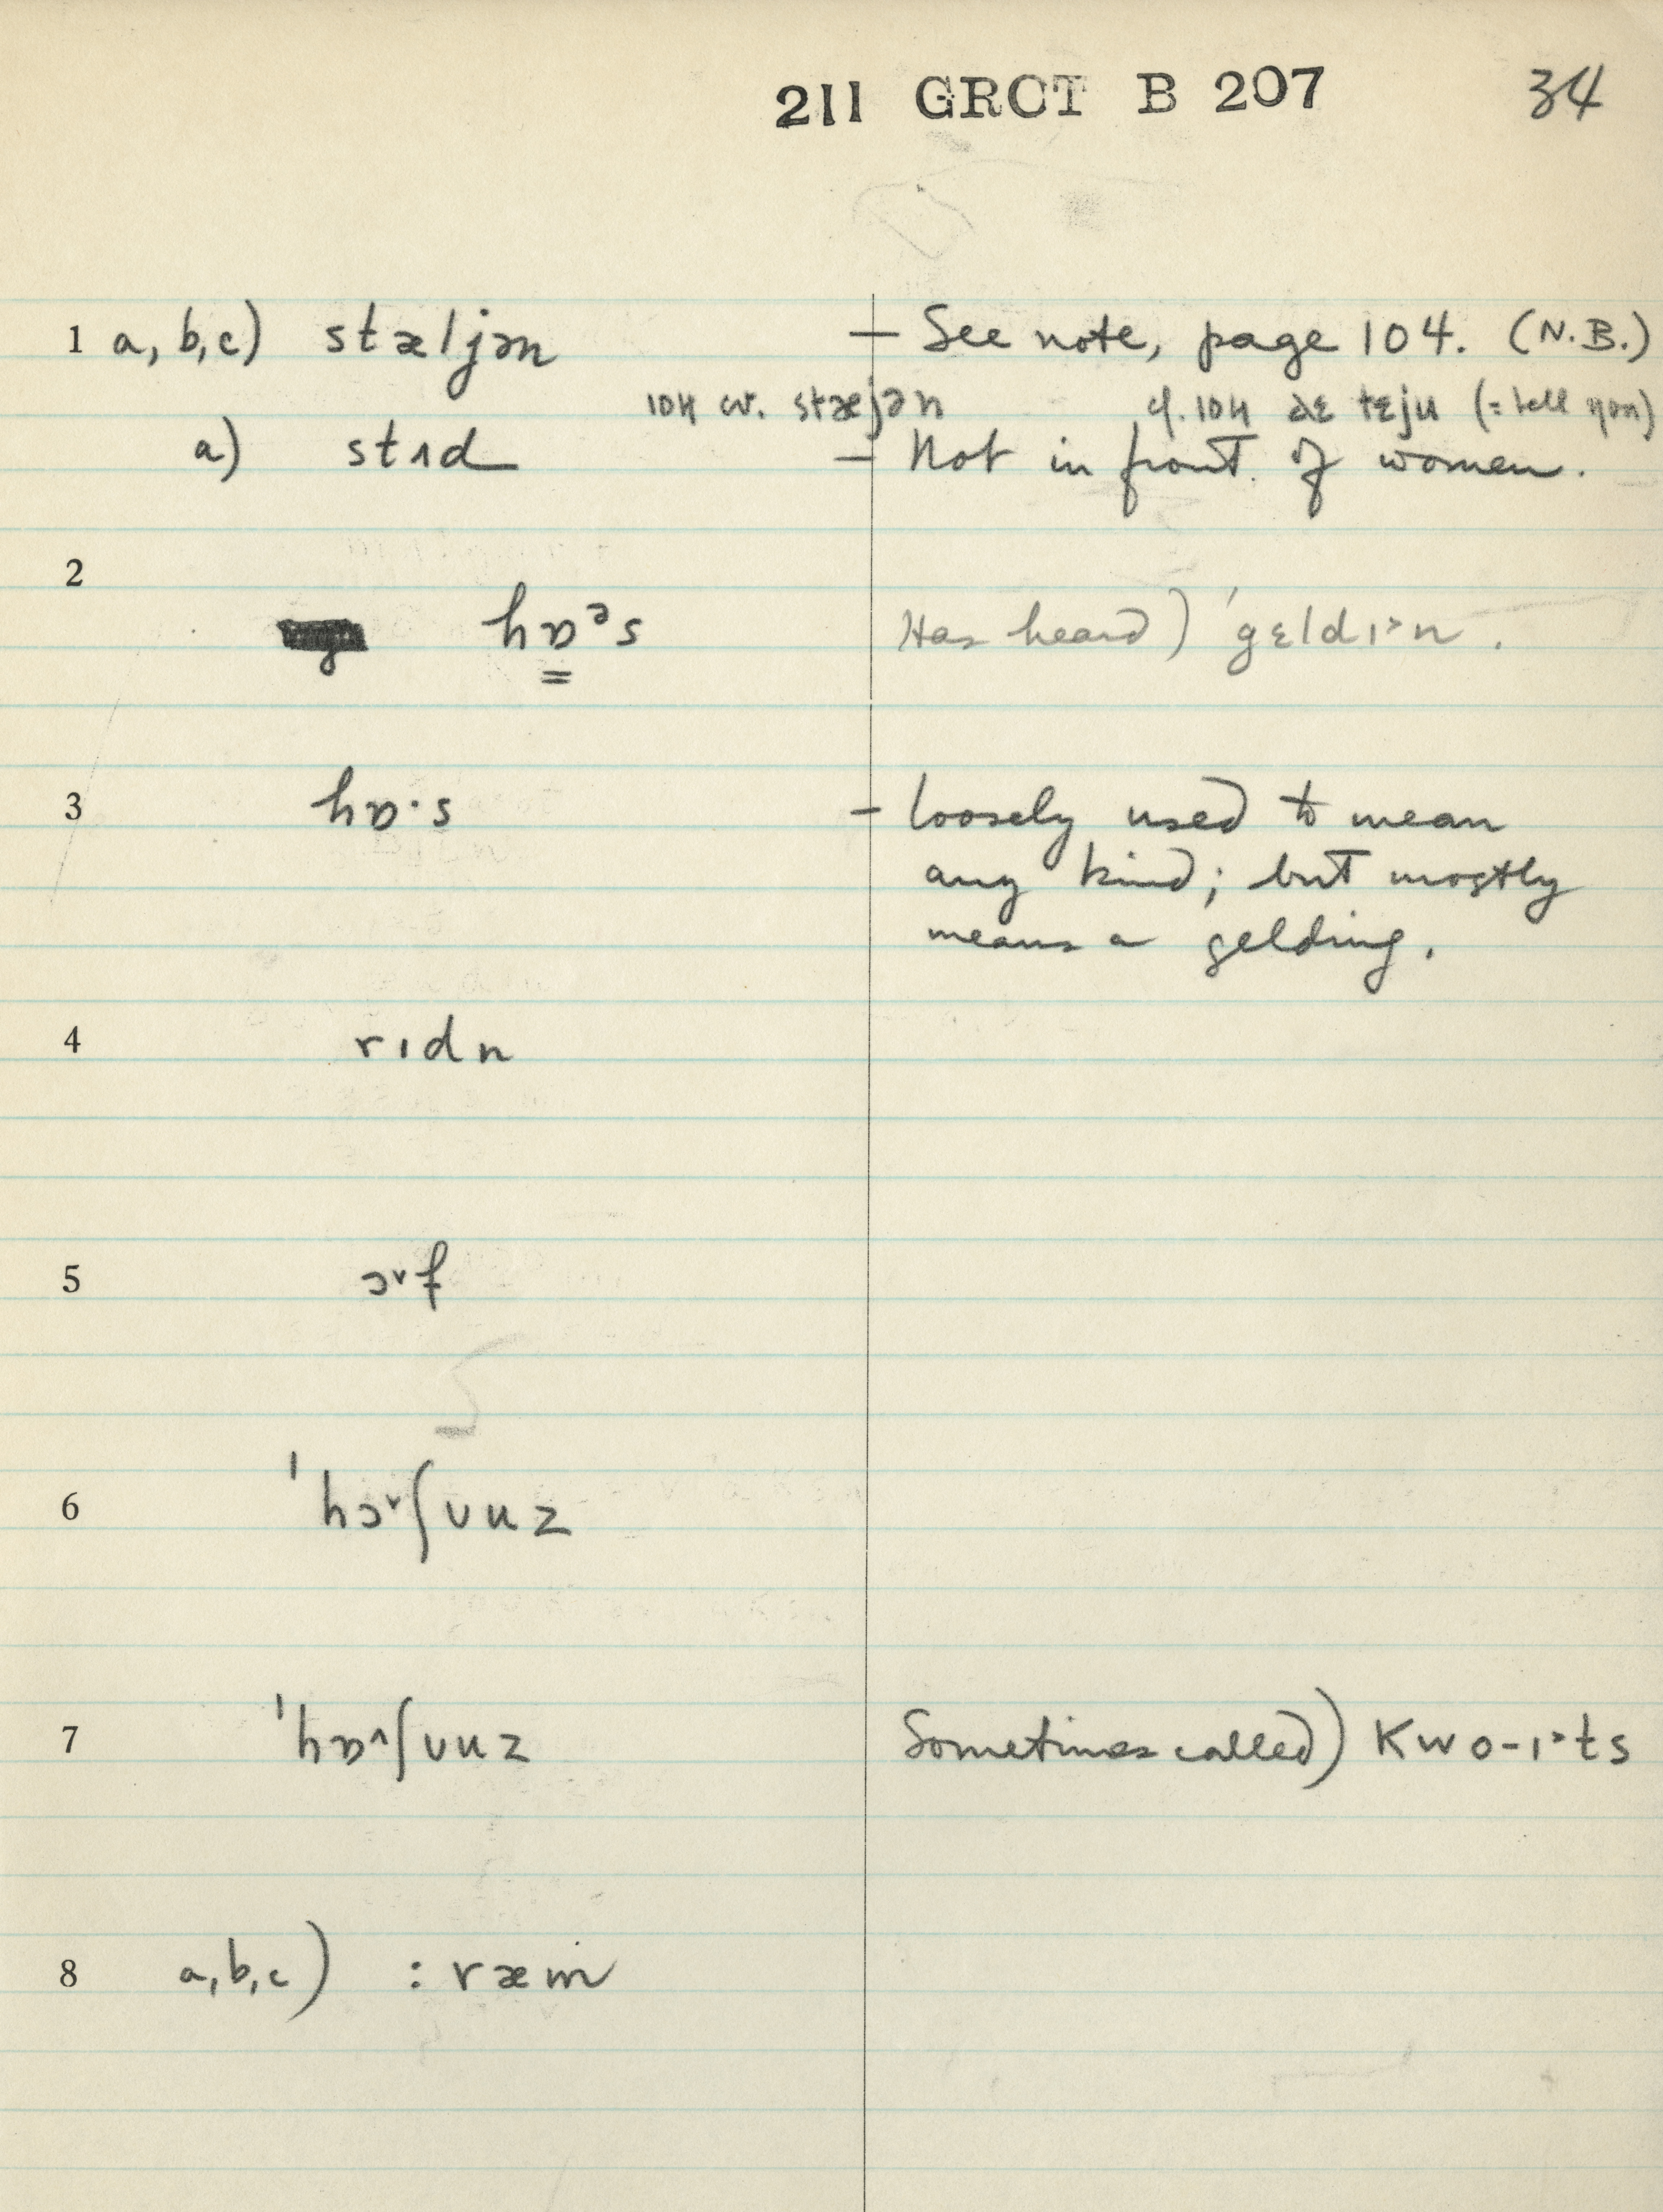 211 GRCT B 207 34
1 a, b, c) stæljən — See note, page 104. (N.B.)
104 cv. stæjən cf. 104 tɛju (= tell you)
a) stɪd — Not in front of women.
2
hɒᵊs Has heard) ˈgɛldɪ˃n.
3 hɒ·s — loosely used to mean
any kind; but mostly
means a gelding.
4 rɪdn
5 ɔ˅f
6 ˈhɔ˅ʃuuz
7 ˈhɒ˄ʃuuz Sometimes called) kwo-ɪ˃ts
8 a, b, c) : ræm